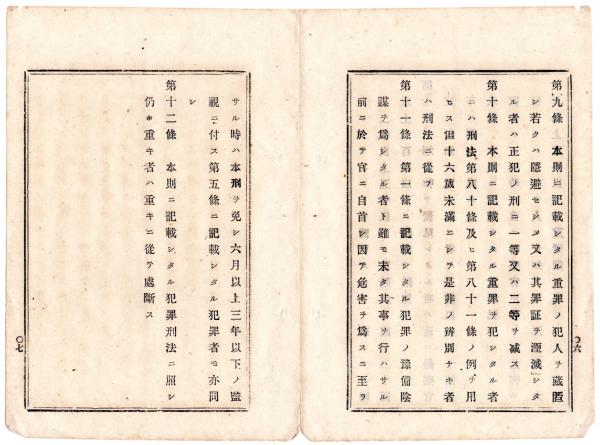 第九條 本則ニ記載シタル重罪ノ犯人ヲ藏匿
シ若クハ隱避セシメ又ハ其罪証ヲ湮滅シタ
ル者ハ正犯ノ刑ニ一等又ハ二等ヲ减ス
第十條 本則ニ記載シタル重罪ヲ犯シタル者
ニハ刑法第八十條及ヒ第八十一條ノ例ヲ用
ヒス但十六歲未滿ニシテ是非ノ辨別ナキ者
ハ刑法ニ從フ
第十一條 第一條ニ記載シタル犯罪ノ豫備陰
謀ヲ爲シタル者ト雖モ未タ其事ヲ行ハサル
前ニ於テ官ニ自首シ因テ危害ヲ爲スニ至ラ
〇六
サル時ハ本刑ヲ免シ六月以上三年以下ノ監
視ニ付ス第五條ニ記載シタル犯罪者モ亦同
シ
第十二條 本則ニ記載シタル犯罪刑法ニ照シ
仍ホ重キ者ハ重キニ從テ處斷ス
〇七